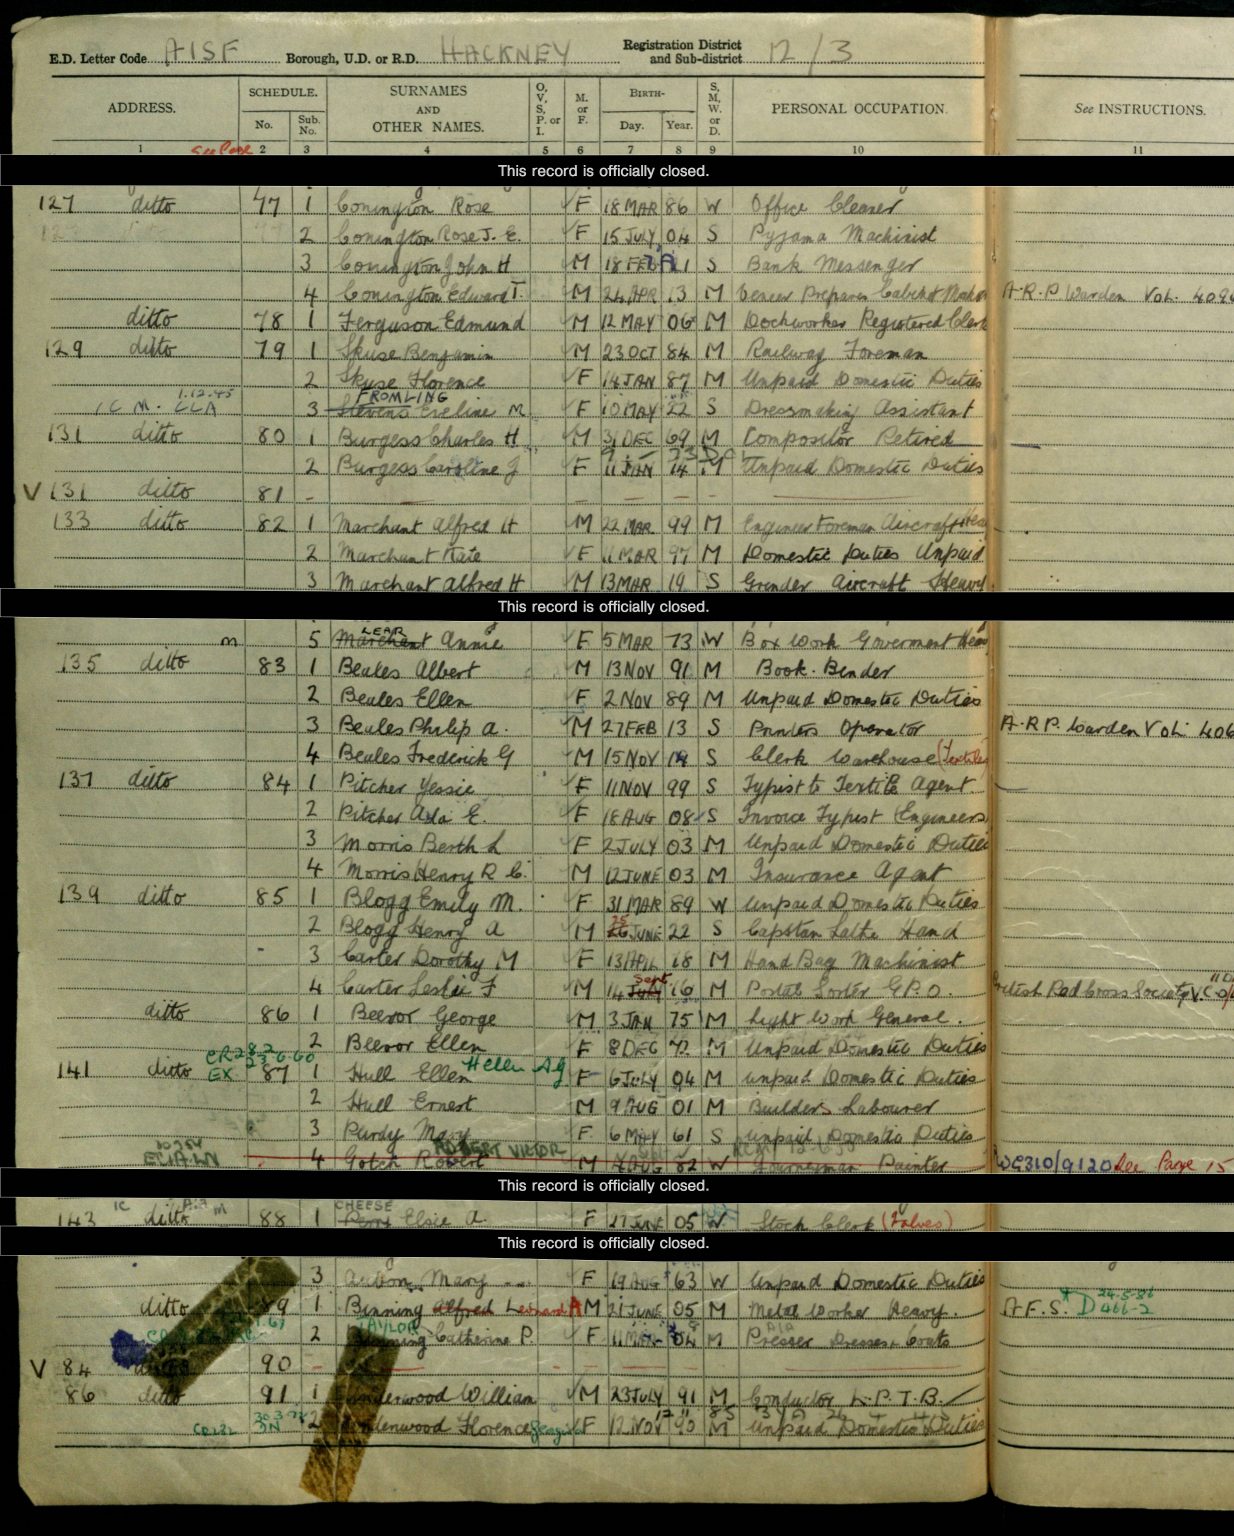 E.D. Letter Code AISF Borough, U.D. or R.D. HACKNEY Registration District and Sub-district 12/3
ADDRESS. SCHEDULE. No. Sub. No. SURNAMES AND OTHER NAMES. O, V, S, P. or I. M. or F. BIRTH- Day. Year. S, M, W. or D. PERSONAL OCCUPATION. See INSTRUCTIONS.
1 See Page 2 3 4 5 6 7 8 9 10 11
This record is officially closed.
127 ditto 77 1 Conington Rose F 18 MAR 86 W Office Cleaner
2 Conington Rose J. E. F 15 JULY 04 S Pyjama Machinist
3 Conington John H M 18 FEB 11 S Bank Messenger
4 Conington Edward T. M 24 APR 13 M Veneer Preparer Cabinet A.R.P Warden Vol. 409
ditto 78 1 Ferguson Edmund M 12 MAY 06 M Dockworker Registered Clerk
129 ditto 79 1 Skuse Benjamin M 23 OCT 84 M Railway Foreman
2 Skuse Florence F 14 JAN 87 M Unpaid Domestic Duties
1.12.45 FROMLING
3 Stevens Eveline M. F 10 MAY 22 S Dressmaking Assistant
131 ditto 80 1 Burgess Charles H. M 31 DEC 69 M Compositor Retired
2 Burgess Caroline J F 11 JAN 74 M Unpaid Domestic Duties
V 131 ditto 81 -
133 ditto 82 1 Marchant Alfred H M 22 MAR 99 M Engineer Foreman Aircraft
2 Marchant Kate F 11 MAR 97 M Domestic Duties Unpaid
3 Marchant Alfred H M 13 MAR 19 S Grinder Aircraft Heavy
This record is officially closed.
LEAR
m 5 Marchant Annie F 5 MAR 73 W Box Work Goverment
135 ditto 83 1 Beales Albert M 13 NOV 91 M Book-Binder
2 Beales Ellen F 2 NOV 89 M Unpaid Domestic Duties
3 Beales Philip A. M 27 FEB 13 S Printers Operator A.R.P. Warden Vol. 406
4 Beales Frederick G M 15 NOV 19 S Clerk Warehouse (Textiles)
137 ditto 84 1 Pitcher Jessie F 11 NOV 99 S Typist to Textile Agent
2 Pitcher Ada E. F 18 AUG 08 S Invoice Typist Engineers
3 Morris Berth L F 2 JULY 03 M Unpaid Domestic Duties
4 Morris Henry R C. M 12 JUNE 03 M Insurance Agent
139 ditto 85 1 Blogg Emily M. F 31 MAR 89 W Unpaid Domestic Duties
2 Blogg Henry A M 26 25 JUNE 22 S Capstan Lathe Hand
3 Carter Dorothy M F 13 APIL 18 M Hand Bag Machinist
4 Carter Leslie F M 14 July Sept 16 M Postal Sorter G.P.O. British Red Cross Society
ditto 86 1 Beevor George M 3 JAN 75 M Light Work General.
2 Beevor Ellen F 8 DEC 72 M Unpaid Domestic Duties
141 ditto EX 87 1 Hull Ellen Hellen F 6 JULY 04 M Unpaid Domestic Duties
2 Hull Ernest M 9 AUG 01 M Builders Labourer
3 Purdy Mary F 6 MAY 61 S Unpaid Domestic Duties
ROBERT VICTOR
4 Gotch Robert M AUG 82 W Journeyman Painter WC310/9120 See Page 15
This record is officially closed.
CHEESE
143 ditto 88 1 Perry Elsie A. F 27 JUNE 05 W Stock Clerk (Valves)
This record is officially closed.
3 Mary F 19 AUG 63 W Unpaid Domestic Duties
ditto 89 1 Binning Alfred Leonard A M 21 JUNE 05 M Metal Worker Heavy. A.F.S. D 466-2 24-5-86
TAYLOR
2 Binning Catherine P. F 11 04 M Presser Dresses & Coats
V 84 ditto 90 -
86 ditto 91 1 Underwood William M 23 JULY 91 M Conductor L.P.T.B.
2 Underwood Florence F 12 NOV 90 M Unpaid Domestic Duties